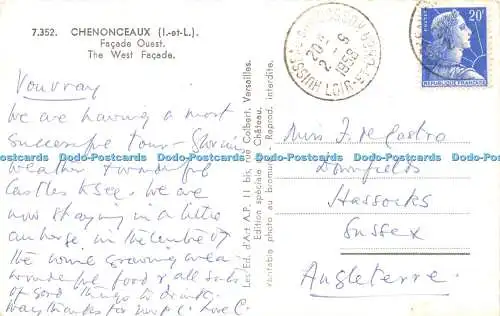 7.352. CHENONCEAUX (I.-et-L.).
Façade Ouest.
The West Façade.
Vouvray
We are having a most
successful tour - Glorious
weather & wonderful
Castles to see. We are
now staying in a little
auberge, in the centre of
the wine growing area -
wonderful food & all sorts
of good things to drink.
Many thanks for . Love C.
Lev. Ed. d'Art A.P. 11 bis, rue Colbert, Versailles.
Edition spéciale du Château.
Véritable photo au bromure - Reprod. interdite.
20
2-6
1958
LOIR-ET-
POSTES
20F
REPUBLIQUE FRANÇAISE
Miss F. de Castro
Downfields
Hassocks
Sussex
Angleterre.
Dodo-Postcards Dodo-Postcards Dodo-Postcards Dodo-Postcards Dodo-Postcards
Dodo-Postcards Dodo-Postcards Dodo-Postcards Dodo-Postcards Dodo-Postcards